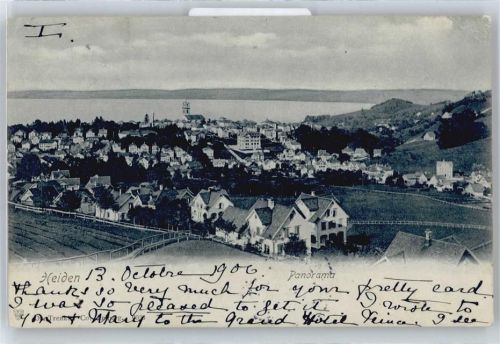 I.
Heiden 13. Octobre 1906 Panorama
Thanks so very much for your pretty card.
I was so pleased to get it. I wrote to
you & Mary to the Grand Hotel . I see